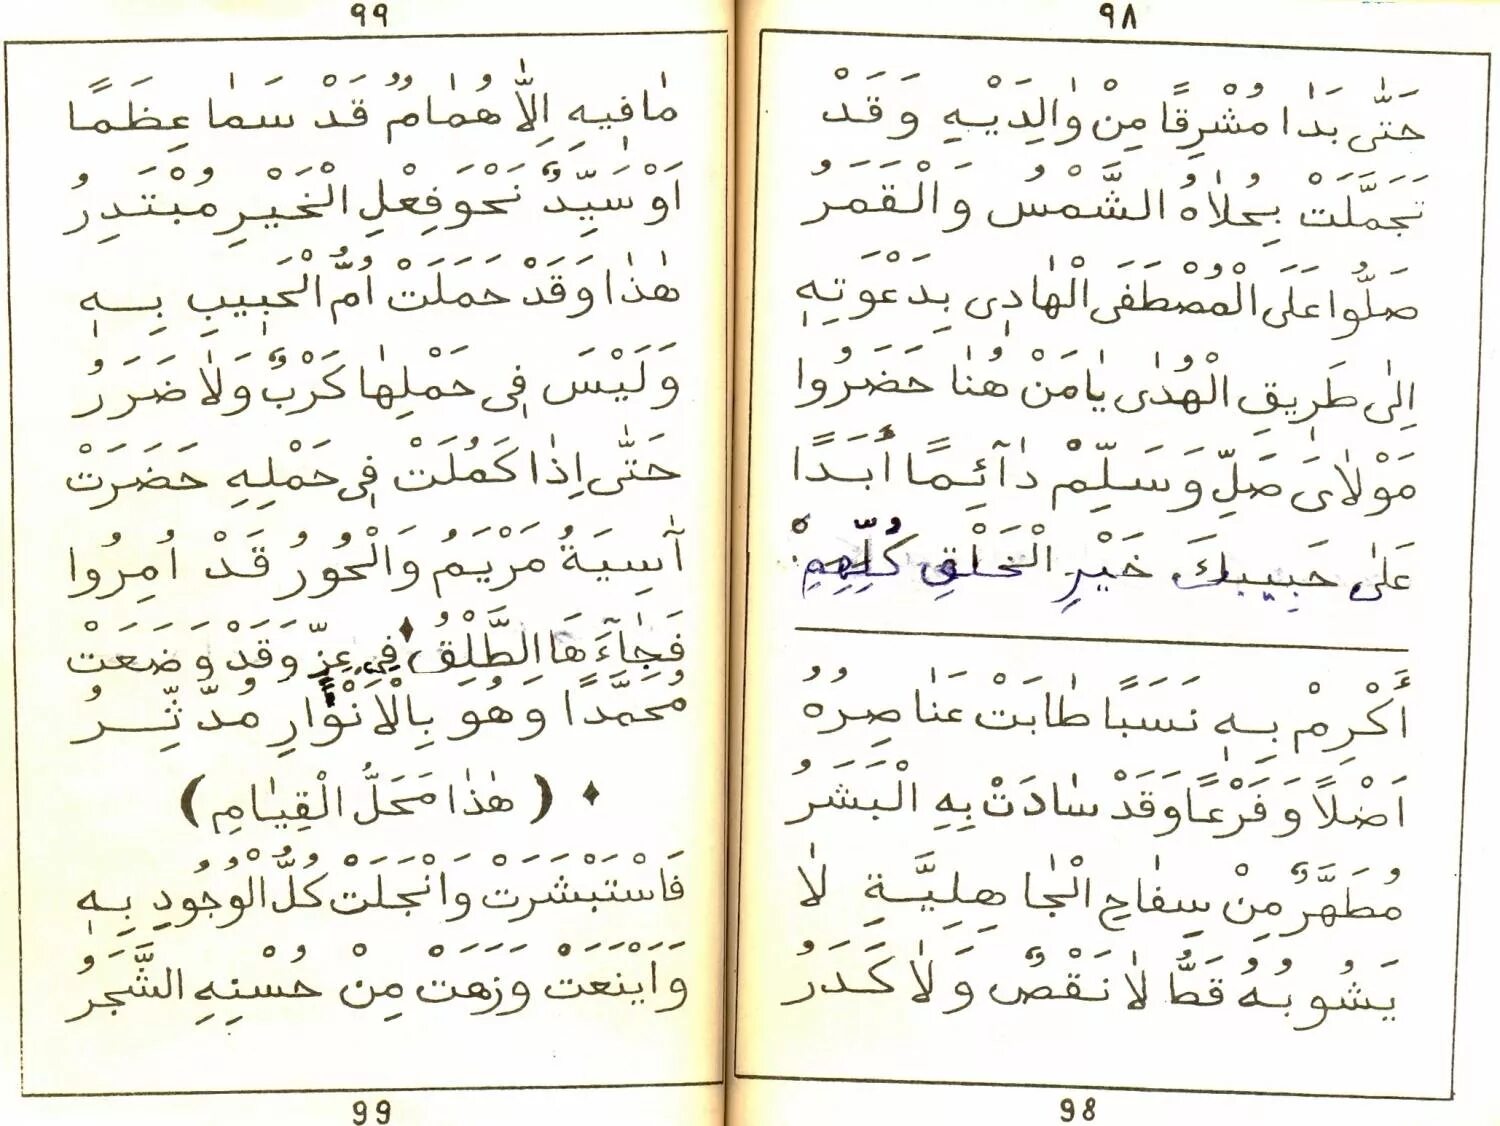 ٩٨
حَتّٰى بَدٰا مُشْرِقًا مِنْ وٰالِدَيْهِ وَقَدْ
تَجَمَّلَتْ بِحُلاٰهُ الشَّمْسُ وَالْقَمَرُ
صَلُّوا عَلَى الْمُصْطَفَى الْهٰادِى بِدَعْوَتِهِ
اِلٰى طَرِيقِ الْهُدٰى يٰا مَنْ هُنٰا حَضَرُوا
مَوْلاٰىَ صَلِّ وَسَلِّمْ دٰآئِمًا أَبَدًا
عَلٰى حَبِيبِكَ خَيْرِ الْخَلْقِ كُلِّهِمِ
أَكْرِمْ بِهِ نَسَبًا طٰابَتْ عَنٰاصِرُهُ
اَصْلاً وَفَرْعًا وَقَدْ سٰادَتْ بِهِ الْبَشَرُ
مُطَهَّرٌ مِنْ سِفٰاحِ الْجٰاهِلِيَّةِ لاٰ
يَشُوبُهُ قَطُّ لاٰ نَقْصٌ وَلاٰ كَدَرُ
98
٩٩
مٰا فِيهِ اِلاّٰ هُمٰامٌ قَدْ سَمٰا عِظَمًا
اَوْ سَيِّدٌ نَحْوَ فِعْلِ الْخَيْرِ مُبْتَدِرُ
هٰذٰا وَقَدْ حَمَلَتْ اُمُّ الْحَبِيبِ بِهِ
وَلَيْسَ فِى حَمْلِهٰا كَرْبٌ وَلاٰ ضَرَرُ
حَتّٰى اِذٰا كَمُلَتْ فِى حَمْلِهِ حَضَرَتْ
آسِيَةُ مَرْيَمُ وَالْحُورُ قَدْ اُمِرُوا
فَجٰآءَهَا الطَّلْقُ فِى عِزٍّ وَقَدْ وَضَعَتْ
مُحَمَّدًا وَهُوَ بِالْاَنْوٰارِ مُدَّثِّرُ
(هٰذٰا مَحَلُّ الْقِيٰامِ)
فَاسْتَبْشَرَتْ وَانْجَلَتْ كُلُّ الْوُجُودِ بِهِ
وَاَيْنَعَتْ وَزَهَتْ مِنْ حُسْنِهِ الشَّجَرُ
99